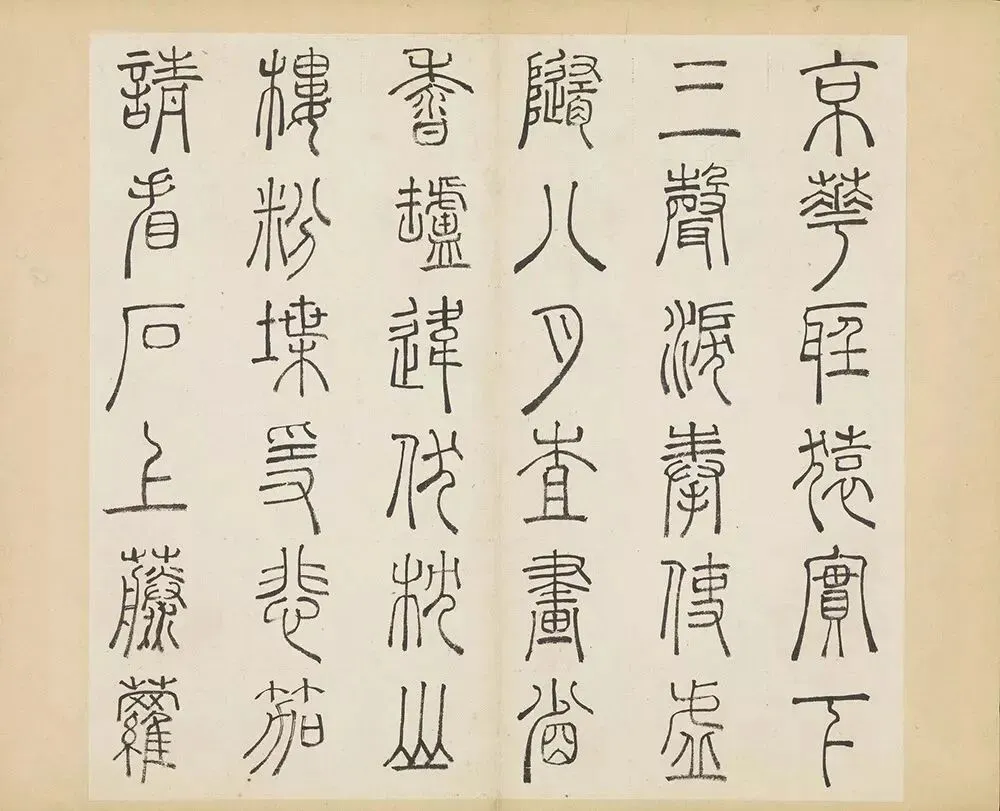 京華聽猿實下
三聲淚奉使虛
隨八月查畫省
香罏違伏枕山
樓粉堞隱悲笳
請看石上藤蘿